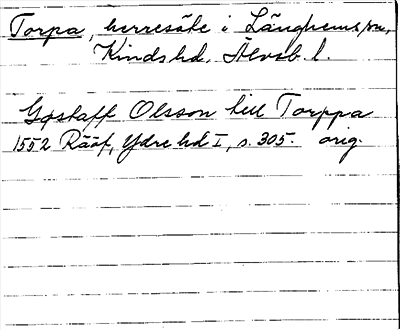 Torpa, herresäte i Länghems sn,
Kinds hd, Älvsb. l.
Gostaff Olsson till Torppa
1552 Rääf, Ydre hd I, s. 305. orig.